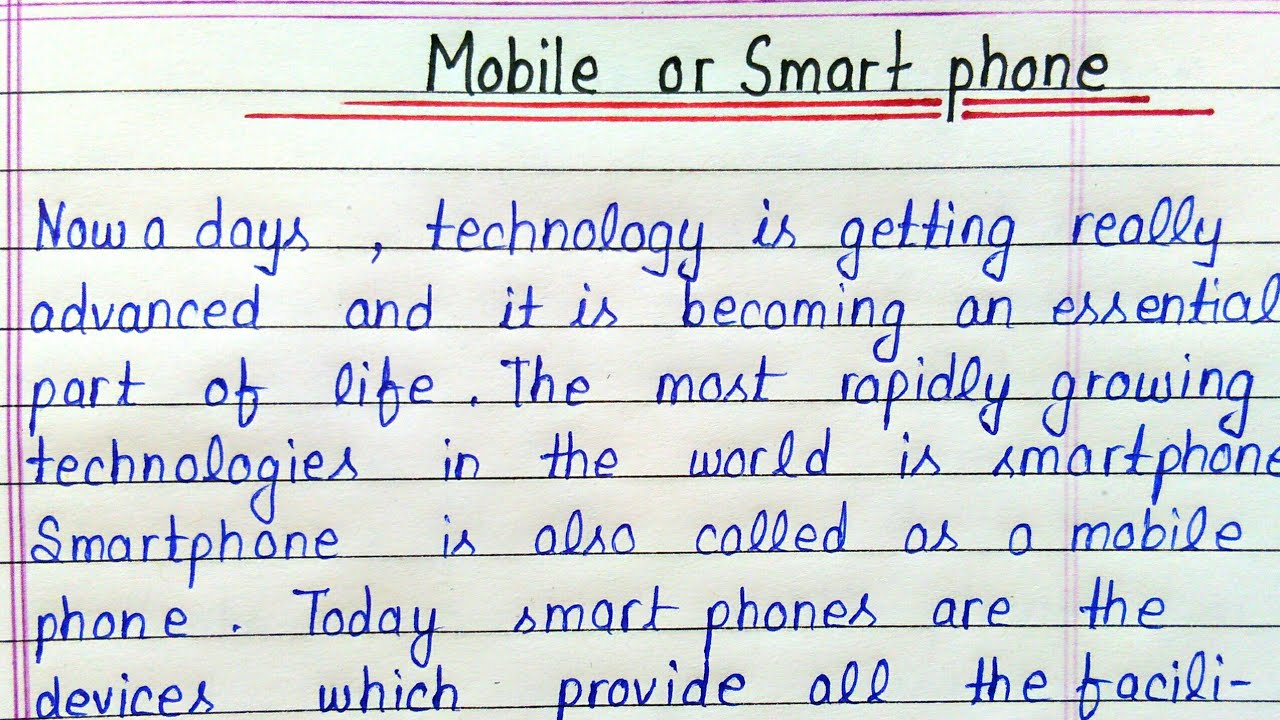 Mobile or Smart phone
Now a days , technology is getting really
advanced and it is becoming an essential
part of life. The most rapidly growing
technologies in the world is smartphone
Smartphone is also called as a mobile
phone. Today smart phones are the
devices which provide all the facili-